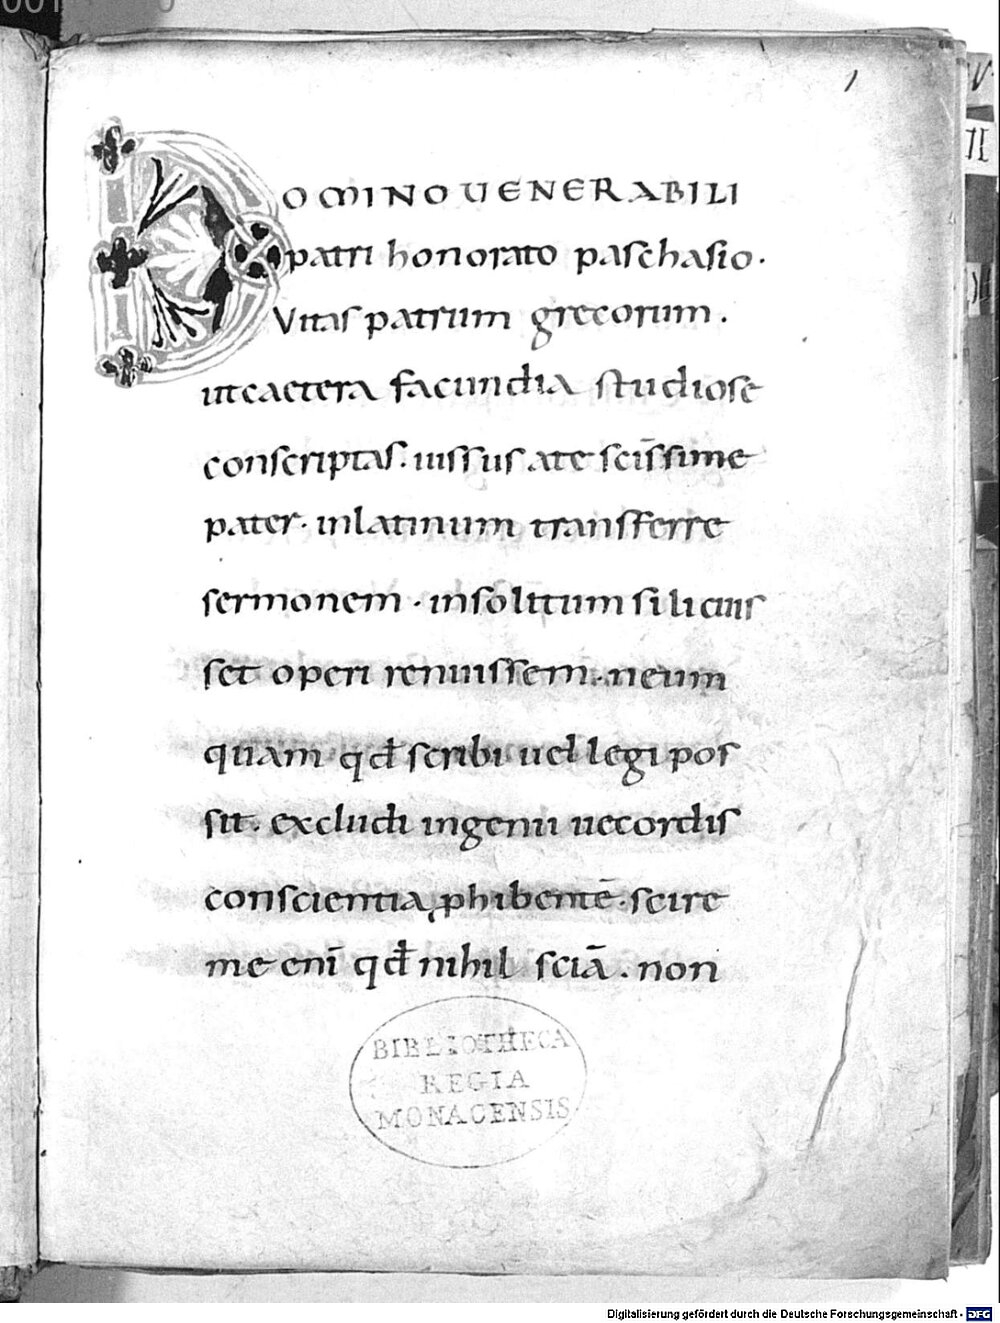 1
DOMINO UENERABILI
patri honorato paschasio.
Vitas patrum grecorum.
ut caetera facundia studiose
conscriptas. iussus ate scis̄sime
pater. inlatinum transferre
sermonem. insolitum si licuis
set operi renuissem. neum
quam qđ scribi uel legi pos
sit. excludi ingenii uecordis
conscientia, phibentē. scire
me enī qđ nihil sciā. non
BIBLIOTHECA
REGIA
MONACENSIS
Digitalisierung gefördert durch die Deutsche Forschungsgemeinschaft - DFG